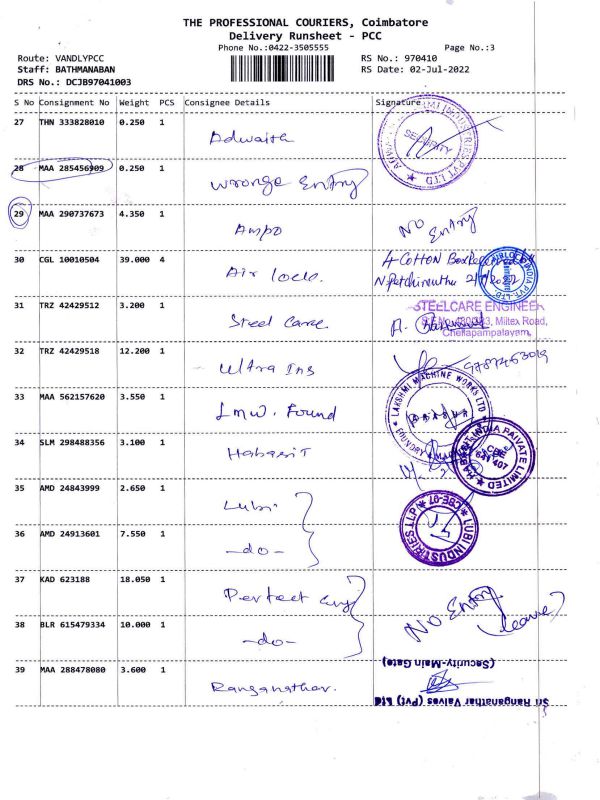 THE PROFESSIONAL COURIERS, Coimbatore
Delivery Runsheet - PCC
Phone No.:0422-3505555
Page No.:3
Route: VANDLYPCC
RS No.: 970410
Staff: BATHMANABAN
RS Date: 02-Jul-2022
DRS No.: DCJB97041003
S No Consignment No Weight PCS Consignee Details Signature
27 THN 333828010 0.250 1 Adwaith
SECURITY
28 MAA 285456909 0.250 1 Wronge Entry
29 MAA 290737673 4.350 1 Ampo NO Entry
30 CGL 10010504 39.000 4 Air lock. 4 COTTON Box
31 TRZ 42429512 3.200 1 Steel Care
STEELCARE ENGINEER
Miltex Road,
Chettapampalayam,
32 TRZ 42429518 12.200 1 Ultra Ins
33 MAA 562157620 3.550 1 LMW. Found
LAKSHMI MACHINE WORKS LTD
34 SLM 298488356 3.100 1 Habasit
HABASIT INDIA PRIVATE LIMITED
CBE
641 407
35 AMD 24843999 2.650 1 Lubi
LUBI INDUSTRIES LLP
CBE-07
36 AMD 24913601 7.550 1 -do-
37 KAD 623188 18.050 1 Perfect NO Entry
leave
38 BLR 615479334 10.000 1 -do-
39 MAA 288478080 3.600 1 Ranganathar.
Sri Ranganathar Valves (Pvt) Ltd
(Security-Main Gate)